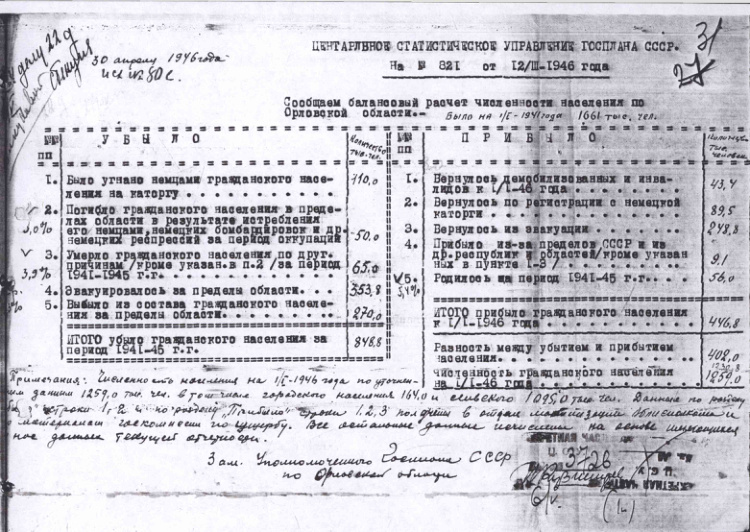 30 апрелу 1946 года
исх № 80с.
31
27
ЦЕНТАРЛЬНОЕ СТАТИСТИЧЕСКОЕ УПРАВЛЕНИЕ ГОСПЛАНА СССР.
На № 821 от 12/III-1946 года
Сообщаем балансовый расчет численности населения по
Орловской области.- Было на 1/I-1941 года 1661 тыс. чел.
№№ пп У Б Ы Л О Количество тыс. чел.
1. Было угнано немцами гражданского насе-
ления на каторгу 710,0
2. Погибло гражданского населения в преде-
лах области в результате истребления
3,0% его немцами, немецких бомбардировок и др.
немецких респрессий за период оккупации 50.0
3. Умерло гражданского населения по друг.
причинам /кроме указан. в п.2 /за период
3,9% 1941-1945 г.г. 65.0
4. Эвакуировалось за пределы области 353,8
5. Выбыло из состава гражданского населе-
ния за пределы области. 270,0
ИТОГО убыло гражданского населения за
период 1941-45 г.г. 848,8
№№ пп П Р И Б Ы Л О Количес. тыс. человек
1. Вернулось демобилизованных и инва-
лидов к 1/I-46 года 43,4
2. Вернулось по регистрации с немецкой
каторги 89,5
3. Вернулось из эвакуации 248,8
4. Прибыло из-за пределов СССР и из
др. республик и областей/кроме указан
ных в пункте 1-3/ 9.1
5. Родилось за период 1941-45 г.г. 56,0
3,4%
ИТОГО прибыло гражданского населения
к 1/I-1946 года 446,8
Разность между убытием и прибытием
населения. 402,0
Численность гражданского населения
на 1/I-46 года 1259,0
Примечания: Численность населения на 1/I-1946 года по уточнен-
ным данным 1259,0 тыс. чел. в том числе городского населения 164,0 и сельского 1095,0 тыс. чел. Данные по разделу
строки 1, 2 и по разделу "Прибыло" строки 1, 2, 3 получены в отделе мобилизации облисполкома и
материалам госкомиссии по ущербу. Все остальные данные исчислены на основе имеющихся
данных текущей отчетности.
Зам. Уполномоченного Госплана СССР
по Орловской области
СЕКРЕТНАЯ ЧАСТЬ
3726